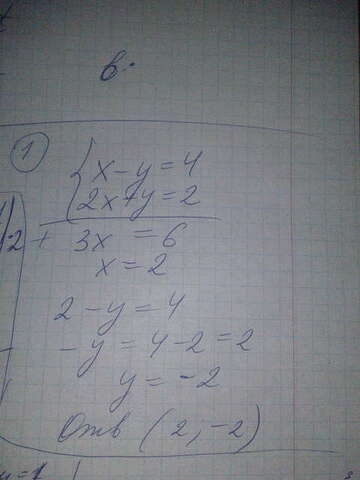 в.
1
{x-y=4
2x+y=2
3x=6
x=2
2-y=4
-y=4-2=2
y=-2
Отв (2;-2)